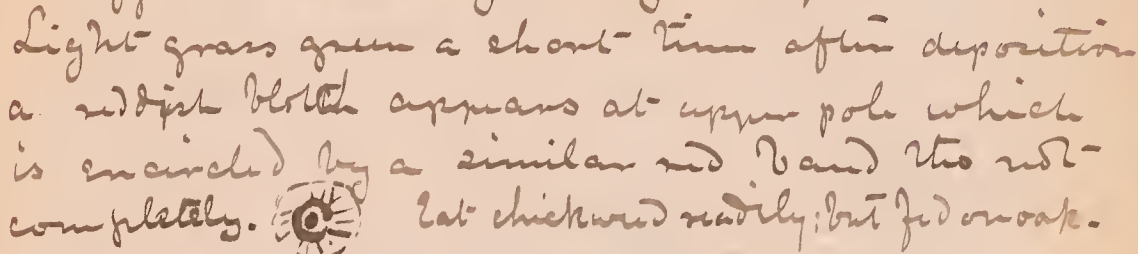 Light grass green a short time after deposition
a reddish blotch appears at upper pole which
is encircled by a similar red band tho not
completely. Eat chickweed readily; but fed on oak.